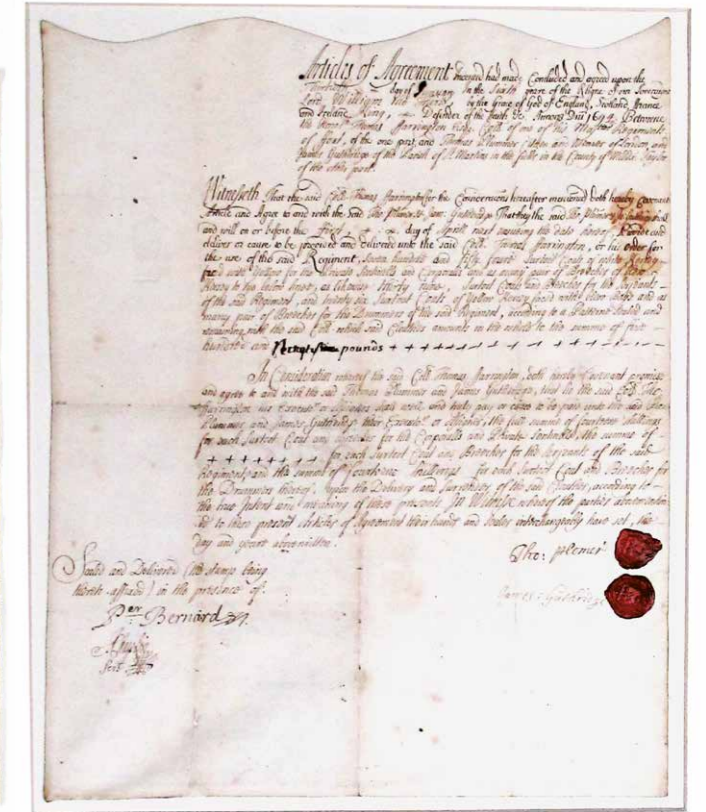 Articles of Agreement indented had made, Concluded and agreed upon the
day of in the Sixth yeare of the Reigne of our Soveraigne
Lord William the Third by the grace of God of England, Scotland, France
and Ireland King, Defender of the Faith &c Annoq Dni 1694. Betweene
the Honoble Thomas Farrington Esqr Coll of one of his Majties Regiments
of Foot, of the one part, and Thomas Plummer Citizen and of London, and
James Gutheridge of the Parish of St Martins in the fields in the County of Middx Taylor
of the other part.
Witnesseth That the said Coll Thomas Farrington for the Consideracons hereafter menconed doth hereby Covenant
and Agree to and with the said Tho Plumer & James Gutheridge That they the said Tho Plumer
and will on or before the First day of Aprill next ensuing the date hereof, Provide and
deliver or cause to be provided and delivered unto the said Coll Thomas Farrington, or his order for
the use of the said Regiment, Seven hundred and Fifty Surtout Coats of white Kersey
faced with for the Private Sentinells and Corporalls and as many pair of Breeches of
Kersey to the Coates lined, as likewise Surtout Coats and Breeches for the Serjeants
of the said Regiment, and twenty six Surtout Coats of Yellow Kersey faced with and as
many pair of Breeches for the Drummers of the said Regiment, according to a Patterne Sealed and
remaining with the said Coll which said Cloathes amounts in the whole to the summe of five
hundred and pounds + + + + + +
In Consideration whereof the said Coll Thomas Farrington, doth hereby Covenant promise
and agree to and with the said Thomas Plummer and James Gutheridge, that he the said Coll Tho
Farrington his Executrs or Assignes shall well and truly pay or cause to be paid unto the said Thomas
Plummer and James Gutheridge their Executrs or Assignes, the full summe of fourteene shillings
for each Surtout Coat and Breeches for the Corporalls and Private Sentinells, the summe of
+ + + + + + + + for each Surtout Coat and Breeches for the Serjeants of the said
Regiment, and the summe of fourteene shillings for each Surtout Coat and Breeches for
the Drummers thereof. upon the Delivery and of the said Cloathes, according to
the true intent and meaning of these presents. In Witness whereof the parties abovemenconed
to these present Articles of Agreement their hands and Seales interchangeably have set, the
day and yeare abovewritten.
Tho: Plomer
James: Guthridge
Sealed and Delivered (the stamps being
therein affixed) in the presence of
Per Bernard